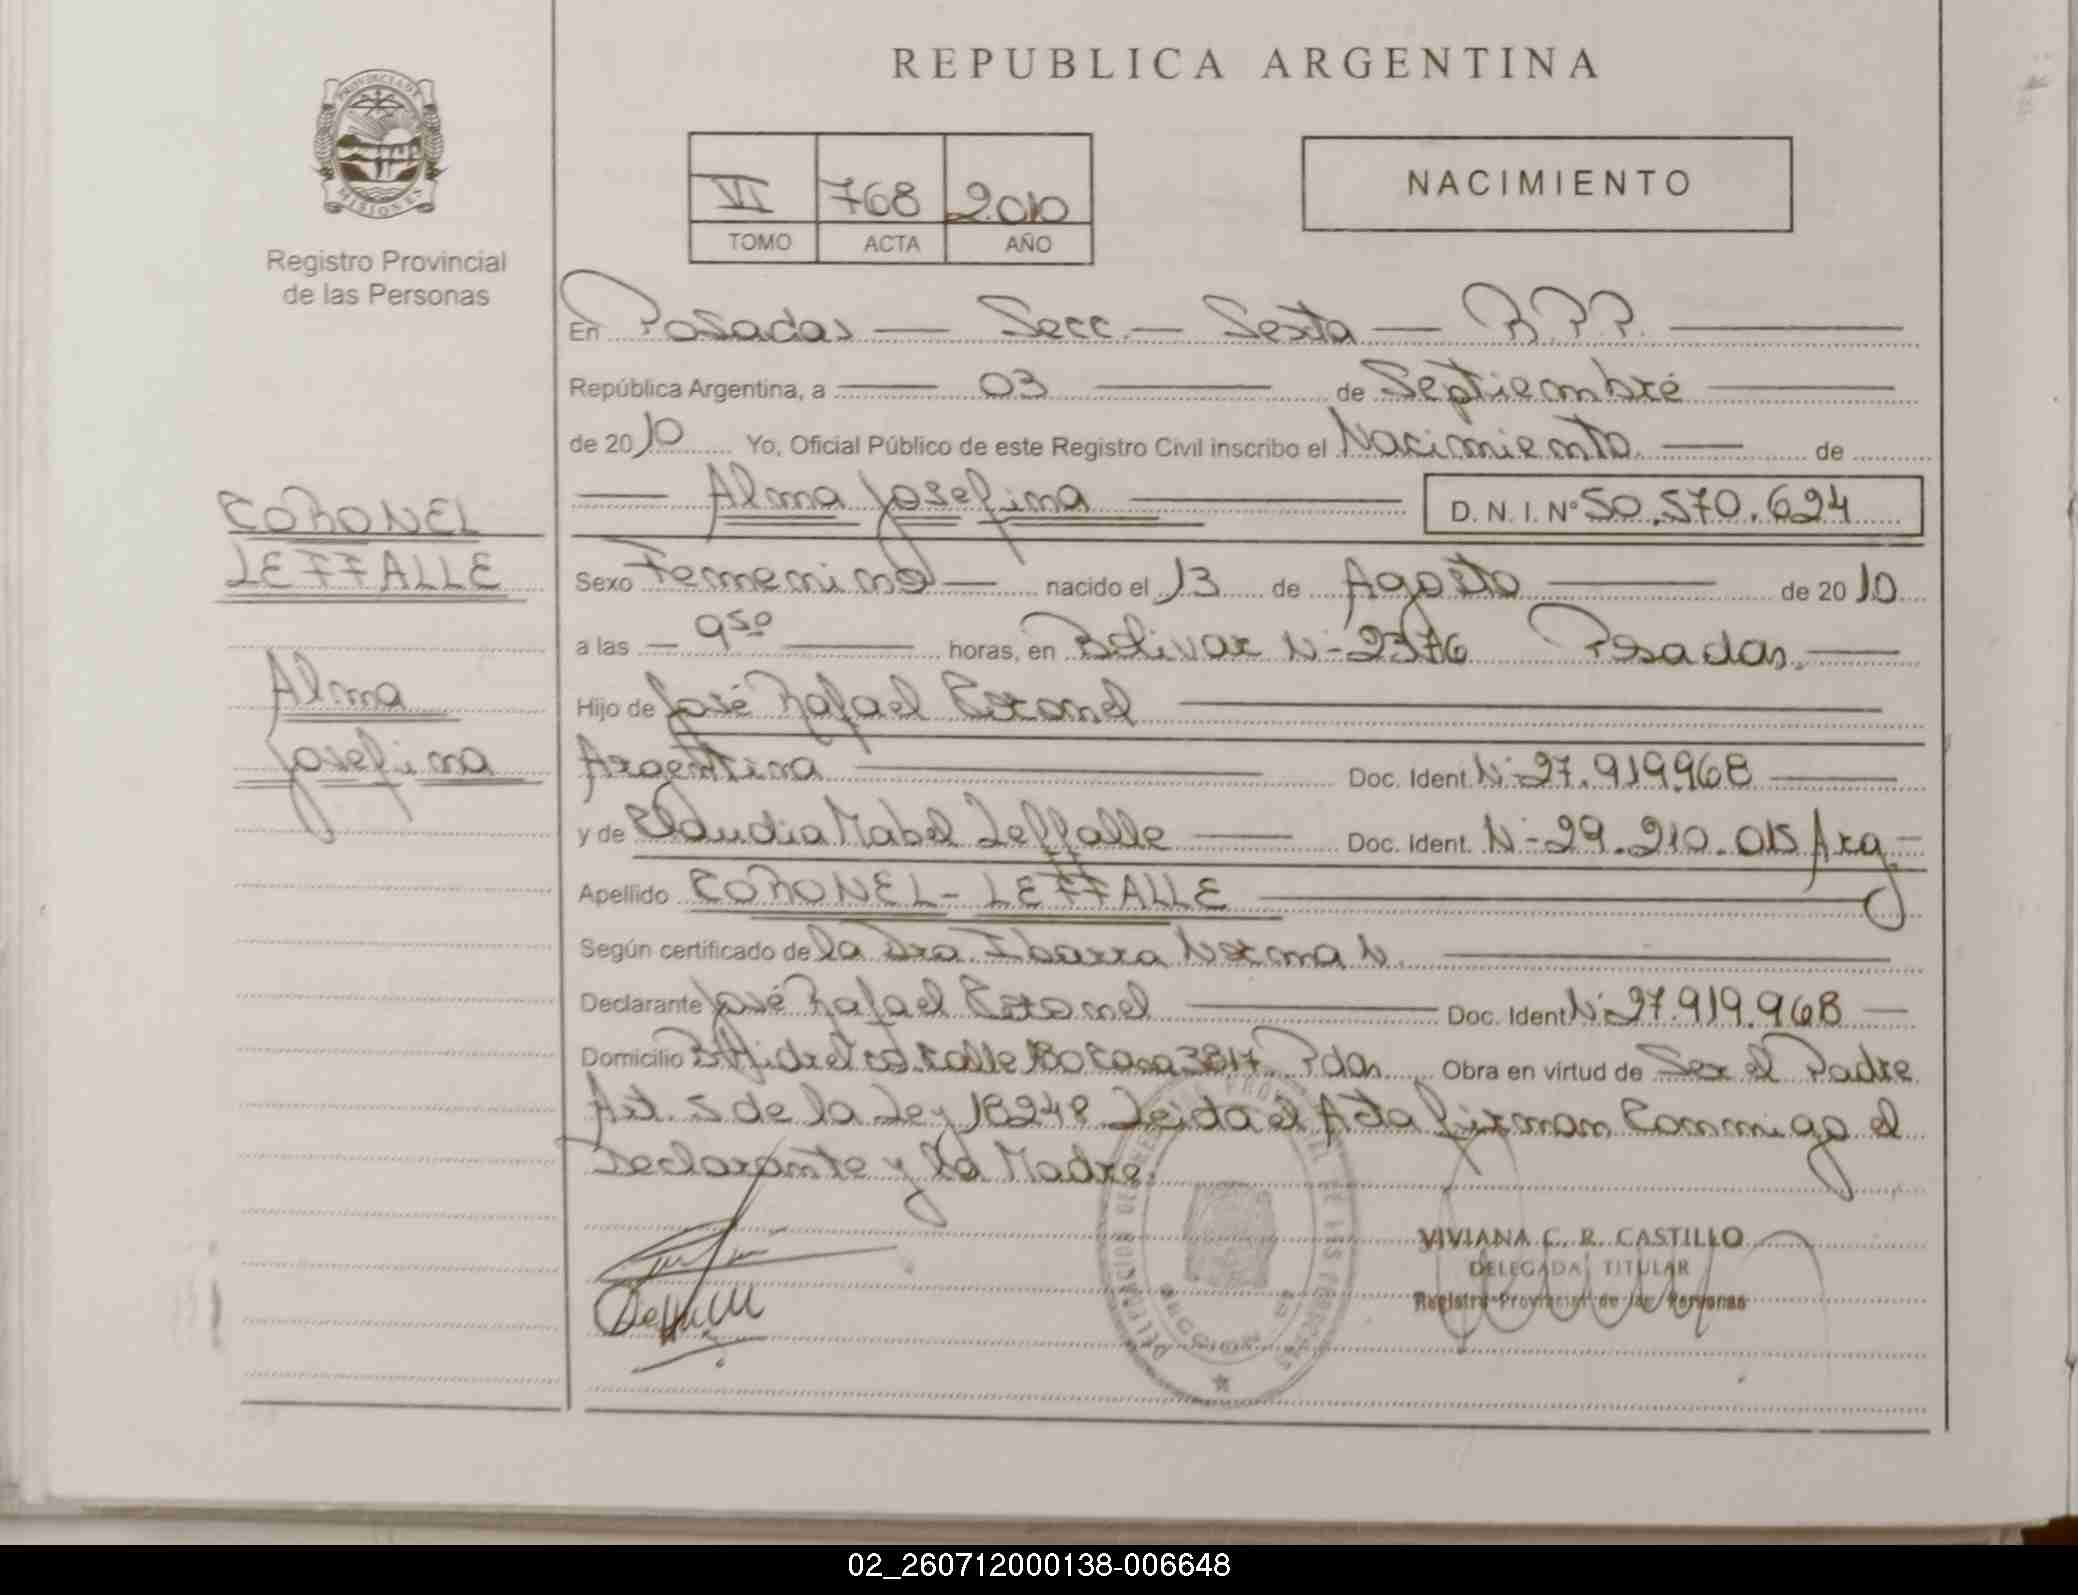 REPUBLICA ARGENTINA
PROVINCIA DE
MISIONES
Registro Provincial
de las Personas
VI 768 2010
TOMO ACTA AÑO
NACIMIENTO
En Posadas — Secc. — Sexta — R.P.P.
República Argentina, a 03 de Septiembre
de 2010 Yo, Oficial Público de este Registro Civil inscribo el Nacimiento de
Alma Josefina D.N.I. Nº 50.570.624
CORONEL
LEFFALLE
Alma
Josefina
Sexo Femenino nacido el 13 de Agosto de 2010
a las 9⁵⁰ horas, en Bolivar N-2376 Posadas.
Hijo de José Rafael Coronel
Argentina Doc. Ident. N-27.919.968
y de Claudia Mabel Leffalle Doc. Ident. N-29.210.015 Arg
Apellido CORONEL - LEFFALLE
Según certificado de la Dra. Ibarra Norma N.
Declarante José Rafael Coronel Doc. Ident N-27.919.968
Domicilio calle 180 Casa Pdas. Obra en virtud de Ser el Padre
Art. 2 de la Ley 18248 Leida el Acta firman Conmigo el
Declarante y la Madre.
VIVIANA C. R. CASTILLO
DELEGADA TITULAR
Registro Provincial de las Personas
SECCION
02_260712000138-006648